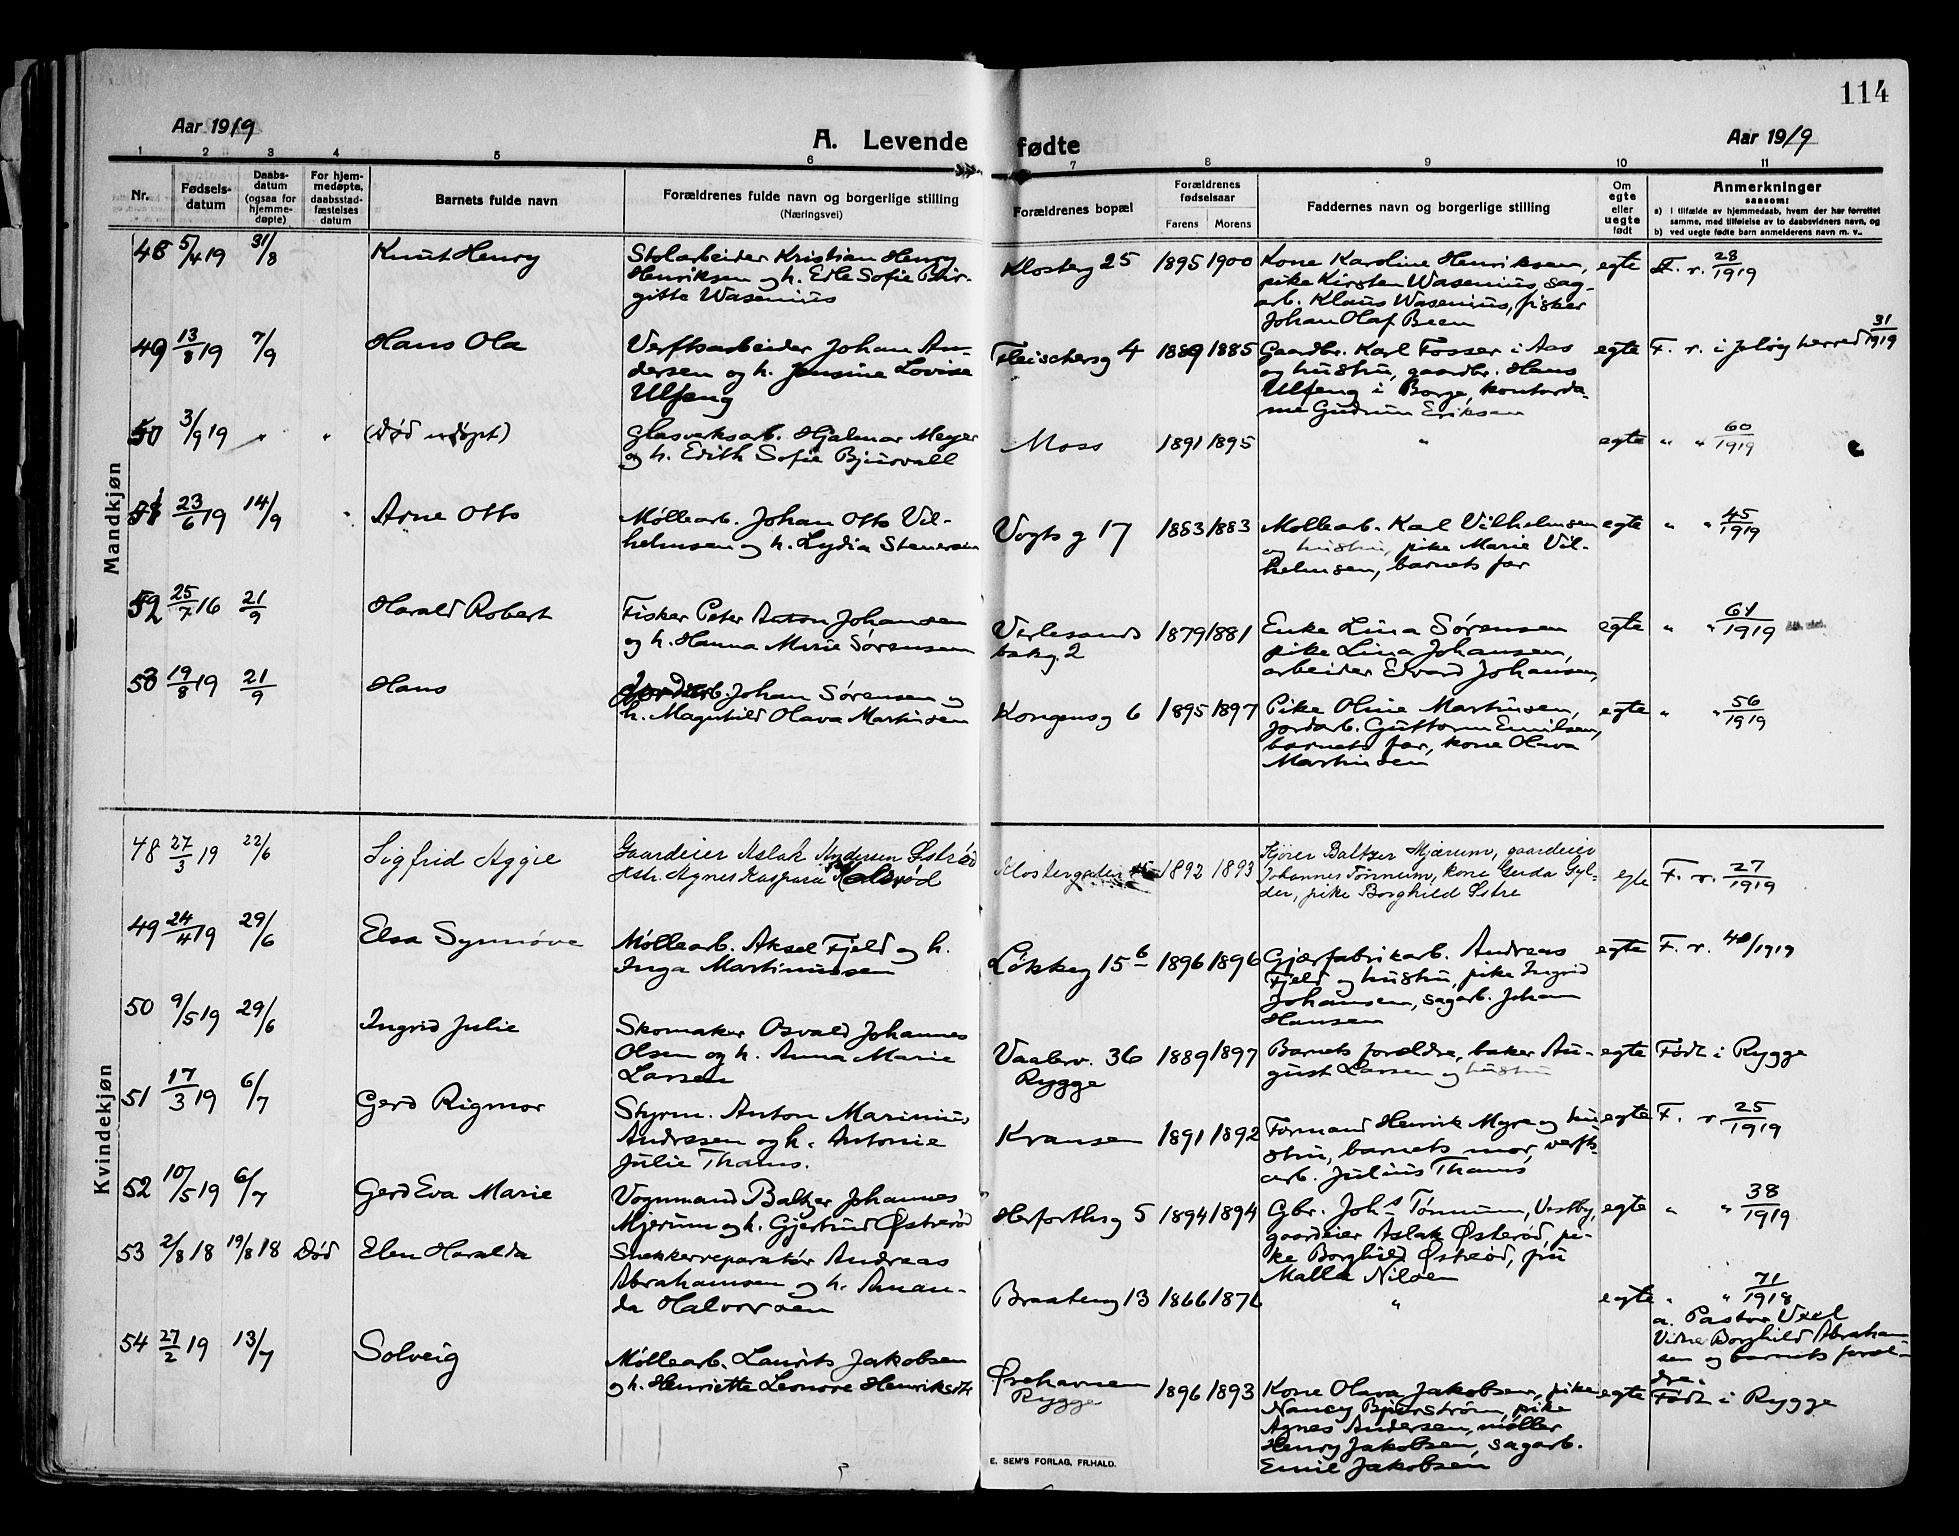 114
Aar 1919
A. Levende fødte
Aar 1919
1 2 3 4 5 6 7 8 9 10 11
Nr.
Fødsels-
datum
Daabs-
datum
(ogsaa for
hjemme-
døpte)
For hjem-
medøpte,
daabsstad-
fæstelses
datum
Barnets fulde navn
Forældrenes fulde navn og borgerlige stilling
(Næringsvei)
Forældrenes bopæl
Forældrenes
fødselsaar
Farens Morens
Faddernes navn og borgerlige stilling
Om
egte
eller
uegte
født
Anmerkninger
saasom:
a) i tilfælde av hjemmedaab, hvem der har forrettet
samme, med tilføielse av to daabsvidners navn, og
b) ved uegte fødte barn anmelderens navn m. v..
Mandkjøn
48 5/4 19 31/8 Knut Henry
Stolarbeider Kristian Henry
Henriksen og h. Edle Sofie Bir-
gitte Wasenius
Klosterg 25 1895 1900
Kone Karoline Henriksen,
pike Kirsten Wasenius, sag-
arb. Klaus Wasenius, fisker
Johan Olaf Been
egte F. r. 28/1919
49 13/8 19 7/9 Hans Ola
Verftsarbeider Johan An-
dersen og h. Jensine Lovise
Ulfeng
Fleischersg 4 1889 1885
Gaardbr. Karl Fosser i Aas
og hustru, gaardbr. Hans
Ulfeng i Borge, kontorda-
me Gudrun Eriksen
egte F. r. i Jeløy herred 31/1919
50 3/9 19 " " (Død udøpt)
Glasverksarb. Hjalmar Meyer
og h. Edith Sofie Bjurvall
Moss 1891 1895 " egte " " 60/1919
51 23/6 19 14/9 " Arne Otto
Møllearb. Johan Otto Vil-
helmsen og h. Lydia Stenersen
Vogts g 17 1883 1883
Møllearb. Karl Vilhelmsen
og hustru, pike Marie Vil-
helmsen, barnets far
egte " " 45/1919
52 25/7 16 21/9 Harald Robert
Fisker Peter Anton Johansen
og h. Hanna Marie Sørensen
Verlesands
bakg. 2
1879 1881
Enke Lina Sørensen
pike Lina Johansen,
arbeider Edvard Johansen,
egte " " 61/1919
53 19/8 19 21/9 Hans
Jordarb. Johan Sørensen og
h. Magnhild Olava Martinsen
Kongensg 6 1895 1897
Pike Oline Martinsen,
jordarb. Guttorm Emilsen,
barnets far, kone Olava
Martinsen
egte " " 56/1919
Kvindekjøn
48 27/3 19 22/6 Sigfrid Aggie
Gaardeier Aslak Andersen Østrød
Hstr. Agnes Kaspara
Klostergaten 1892 1893
Kjører Baltzer Mjærum, gaardeier
Johannes Tønnum, kone Gerda Gyl-
der, pike Borghild Østre
egte F. r. 27/1919
49 24/4 19 29/6 Elsa Synnøve
Møllearb. Aksel Fjeld og h.
Inga Martinussen
Løkkeg 15 b 1896 1896
Gjærfabrikarb. Andreas
Fjeld og hustru, pike Ingrid
Johansen, sagarb. Johan
Hansen
egte F. r. 40/1919
50 9/5 19 29/6 Ingrid Julie
Skomaker Osvald Johannes
Olsen og h. Anna Marie
Larsen
Vaalerv. 36
Rygge
1889 1897
Barnets forældre, baker Au-
gust Larsen og hustru
egte Født i Rygge
51 17/3 19 6/7 Gerd Rigmor
Styrm. Anton Marinius
Andresen og h. Antonie
Julie Thams.
Kransen 1891 1892
Formand Henrik Myre og hu-
stru, barnets mor, verfts-
arb. Julius Thams
egte F. r. 25/1919
52 10/5 19 6/7 Gerd Eva Marie
Vognmand Baltzer Johannes
Mjerum og h. Gjertrud Østrød
Herforthsg 5 1894 1894
Gbr. Johs Tønnum, Vestby,
gaardeier Aslak Østerød, pi-
ke Borghild Østrød, fru
Malla Nilsen
egte " " 38/1919
53 2/8 18 19/8 18 Død Elen Haralda
Snekkerreparatør Andreas
Abrahamsen og h. Aman-
da Halvorsen
Braateng 13 1866 1876 " egte " " 71/1918
a. Pastor Uxel
Vidne Borghild Abraham-
sen og barnets forel-
dre.
54 27/2 19 13/7 Solveig
Møllearb. Laurits Jakobsen
og h. Henriette Leonore Henriksen
Ørehavnen
Rygge
1896 1893
Kone Olava Jakobsen, pike
Nancy Bjerstrøm, pike
Agnes Andersen, møller
Henry Jakobsen, sagarb.
Emil Jakobsen
egte Født i Rygge
E. SEM'S FORLAG, FR.HALD.